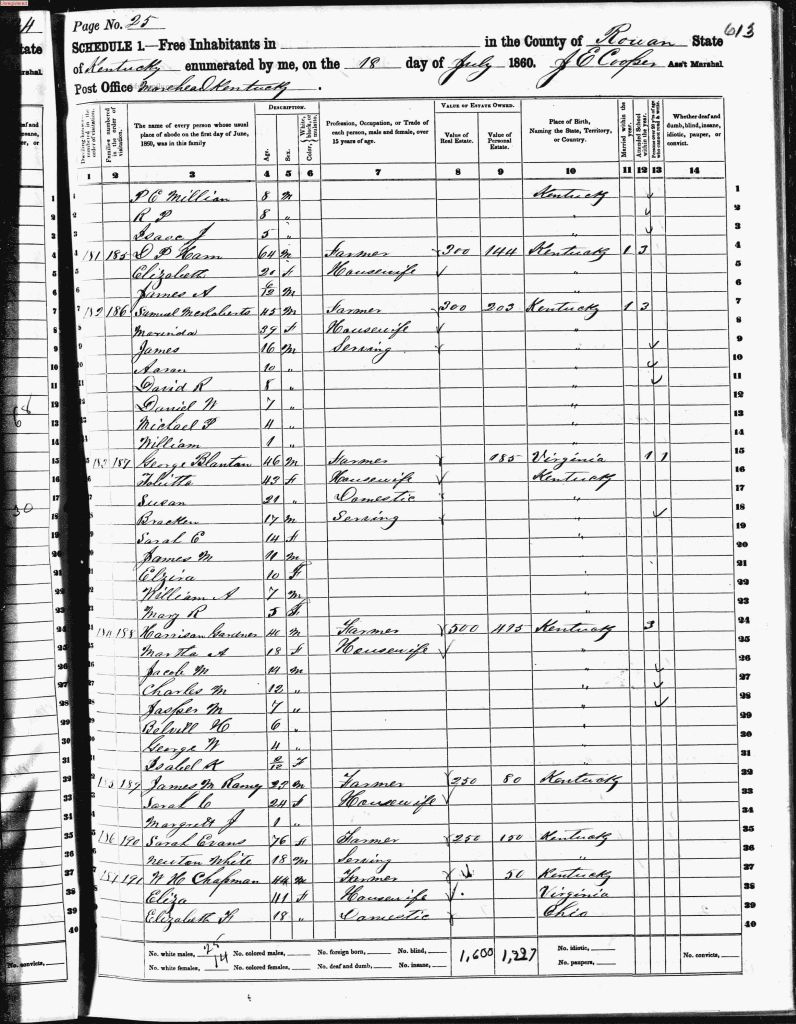 Page No. 25
613
SCHEDULE 1.—Free Inhabitants in in the County of Rowan State
of Kentucky enumerated by me, on the 18 day of July 1860. J E Cooper Ass't Marshal
Post Office Morehead Kentucky.
DESCRIPTION. VALUE OF ESTATE OWNED.
Dwelling-houses—numbered in the order of visitation. Families numbered in the order of visitation. The name of every person whose usual place of abode on the first day of June, 1860, was in this family Age. Sex. Color, White, black, or mulatto. Profession, Occupation, or Trade of each person, male and female, over 15 years of age. Value of Real Estate. Value of Personal Estate. Place of Birth, Naming the State, Territory, or Country. Married within the year. Attended School within the year. Persons over 20 y'rs of age who cannot read & write. Whether deaf and dumb, blind, insane, idiotic, pauper, or convict.
1 2 3 4 5 6 7 8 9 10 11 12 13 14
1 P E Millian 8 m Kentucky 1
2 R P 8 " " 2
3 Isaac J 5 " " 3
4 181 185 D P Ham 64 m Farmer 300 144 Kentucky 1 3 4
5 Elizabeth 20 f Housewife " 5
6 James A 6/12 m " 6
7 182 186 Samuel McRoberts 45 m Farmer 300 203 Kentucky 1 3 7
8 Marinda 39 f Housewife " 8
9 James 16 m Serving " 9
10 Aaran 10 " " 10
11 David R 8 " " 11
12 Daniel W 7 " " 12
13 Michael P 4 " " 13
14 William 1 " " 14
15 183 187 George Blanton 46 m Farmer 185 Virginia 1 1 15
16 43 f Housewife Kentucky 16
17 Susan 21 " Domestic " 17
18 Bracken 17 m Serving " 18
19 Sarah E 14 f " 19
20 James M 11 m " 20
21 Elzira 10 f " 21
22 William A 7 m " 22
23 Mary R 5 f " 23
24 184 188 Harrison Gardner 40 m Farmer 500 495 Kentucky 3 24
25 Martha A 18 f Housewife " 25
26 Jacob M 14 m " 26
27 Charles M 12 " " 27
28 Jasper M 7 " " 28
29 H 6 " " 29
30 George W 4 " " 30
31 Isabel K f " 31
32 185 189 James M Ramy 23 m Farmer 250 80 Kentucky 32
33 Sarah C 24 f Housewife " 33
34 Margrett J 1 " " 34
35 186 190 Sarah Evans 76 f Farmer 250 150 Kentucky 35
36 Newton White 18 m Serving " 36
37 187 191 W H Chapman 44 m Farmer 50 Kentucky 37
38 Eliza 41 f Housewife Virginia 38
39 Elizabeth F 18 " Domestic Ohio 39
40 40
No. white males, 25 No. colored males, No. foreign born, No. blind, 1,600 1,227 No. idiotic, No. convicts,
No. white females, 14 No. colored females, No. deaf and dumb, No. insane, No. paupers,
No. convicts,